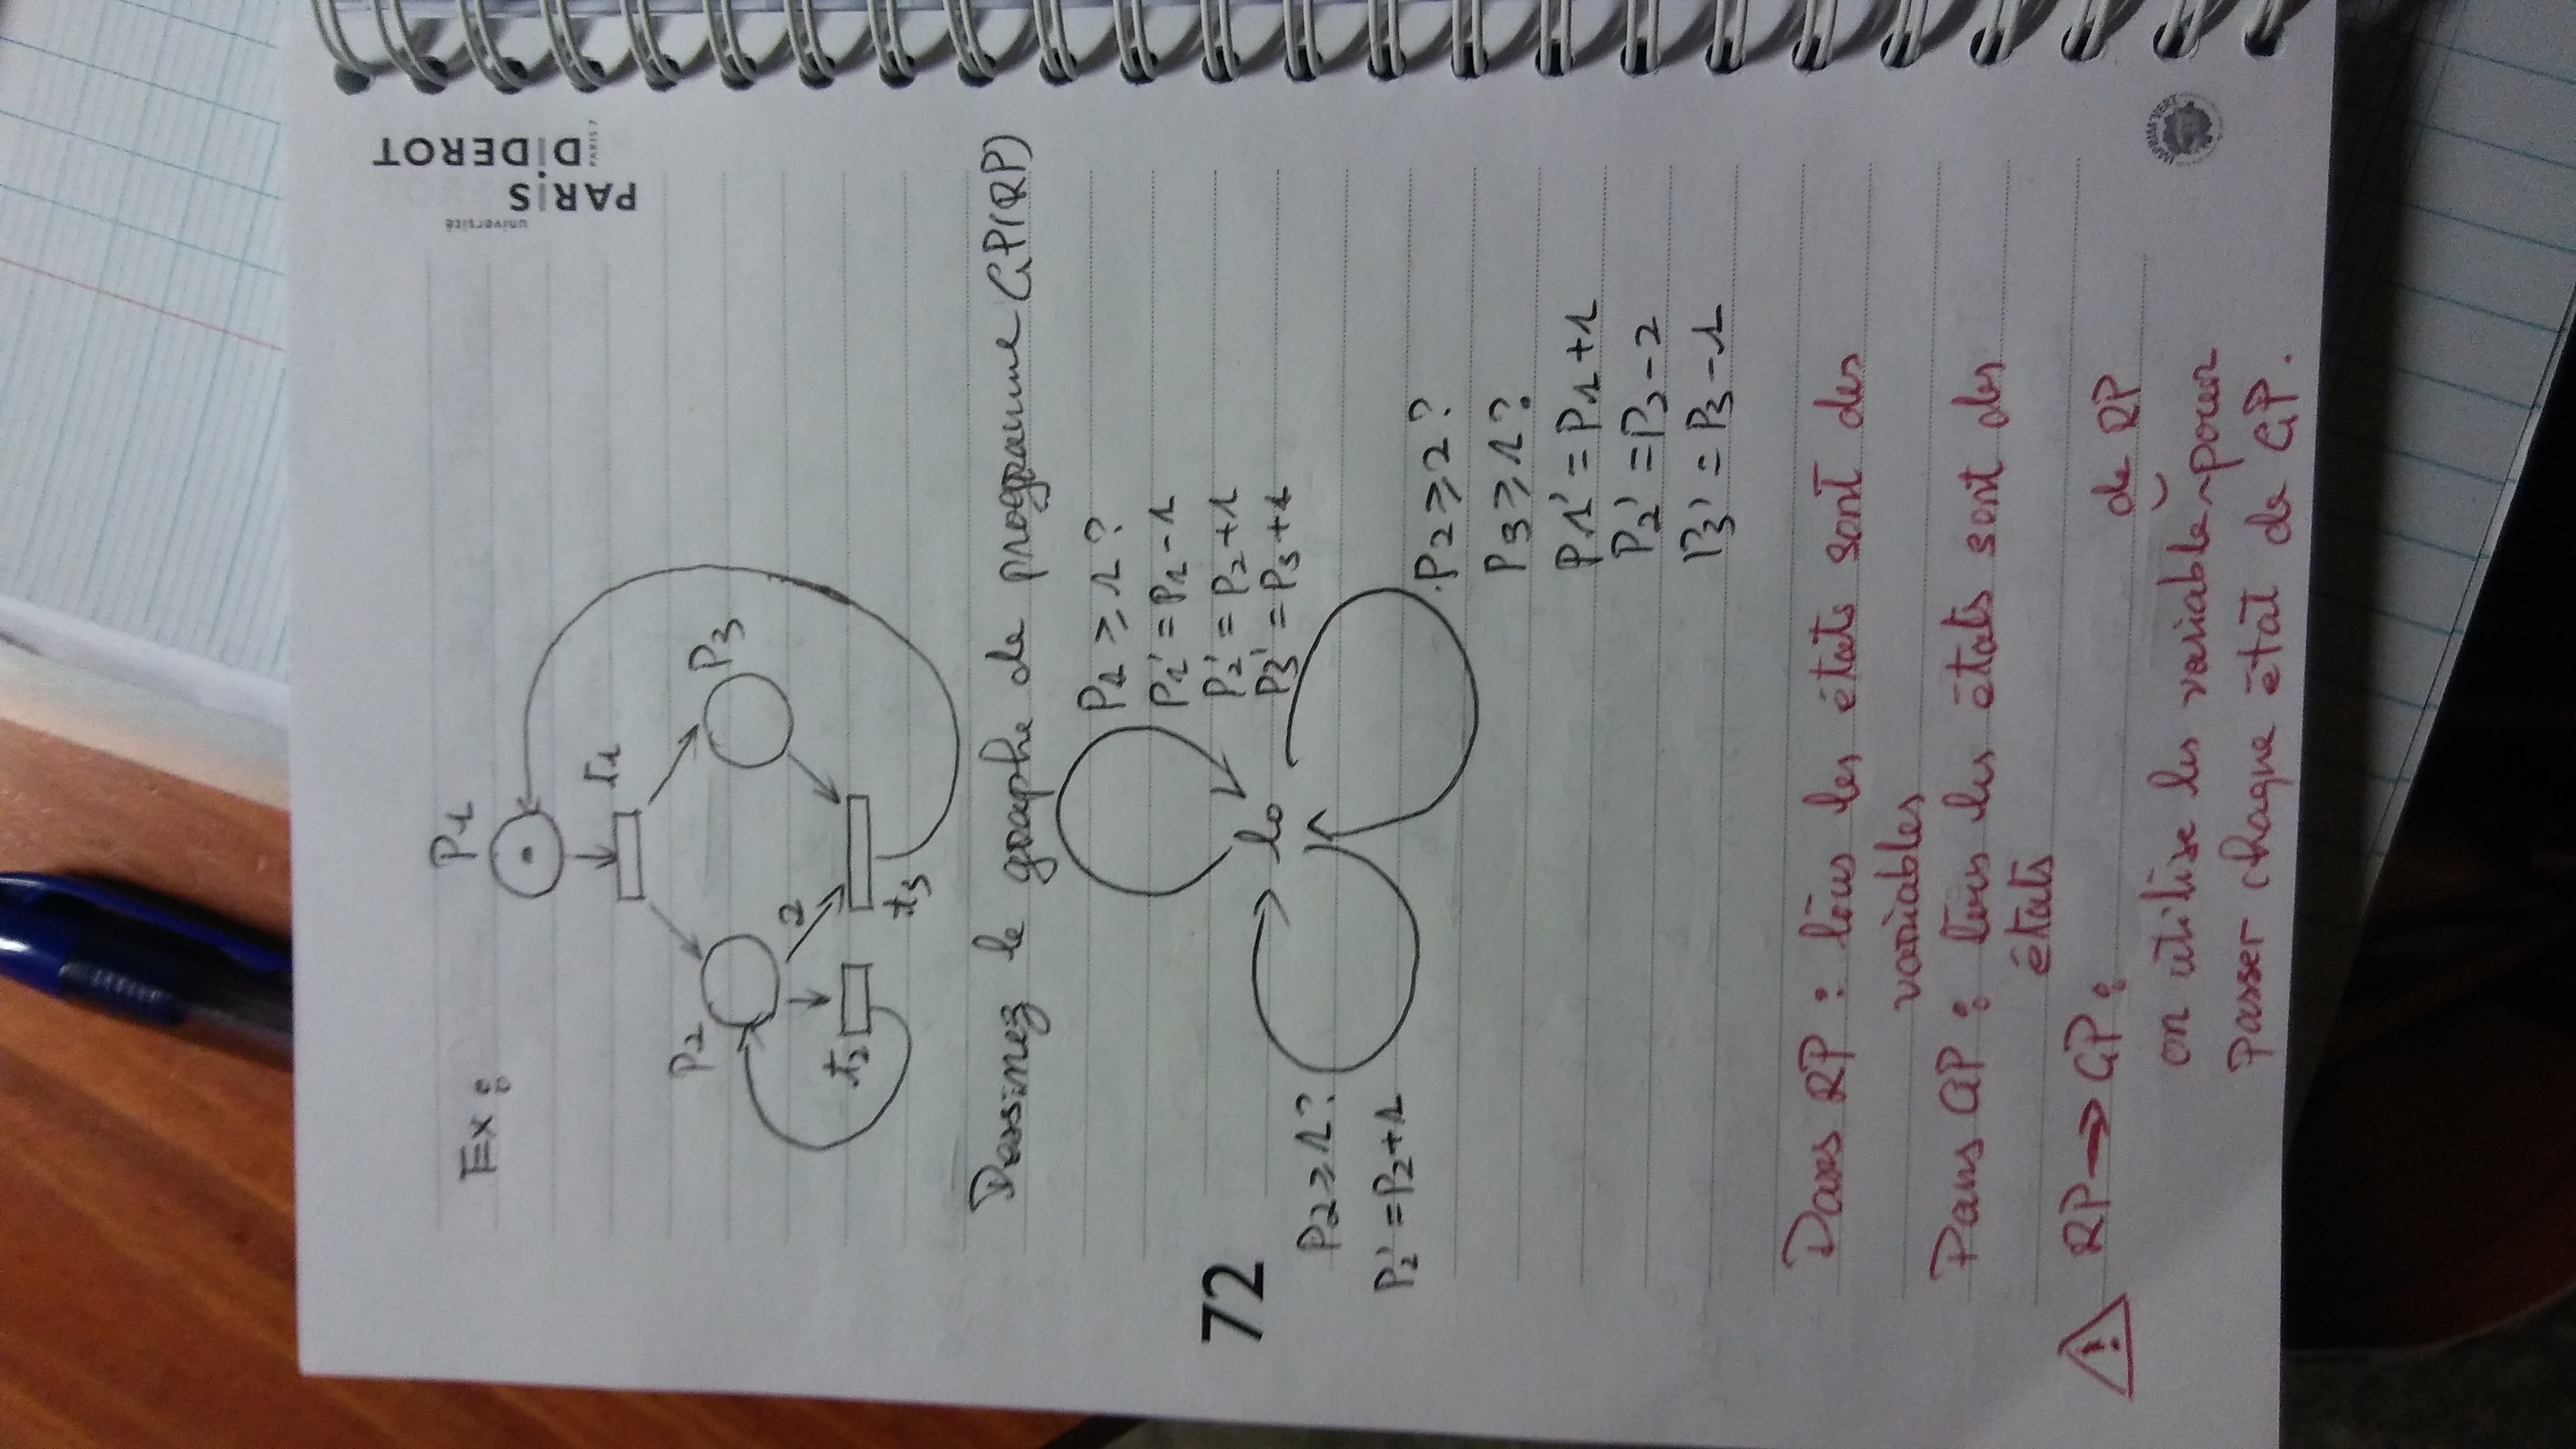 université
PARIS
DIDEROT
PARIS 7
Ex :
P1
t1
P2
P3
2
t2
t3
Dessinez le graphe de programme GP(RP)
P1 ≥ 1 ?
P1' = P1 - 1
P2' = P2 + 1
P3' = P3 + 1
72
l0
P2 ≥ 1 ?
P2' = P2 + 1
P2 ≥ 2 ?
P3 ≥ 1 ?
P1' = P1 + 1
P2' = P2 - 2
P3' = P3 - 1
Dans RP : tous les états sont des
variables
Dans GP : tous les états sont des
états
! RP → GP :
de RP
on utilise les variable pour
passer chaque état de GP.
IMPRIM'VERT